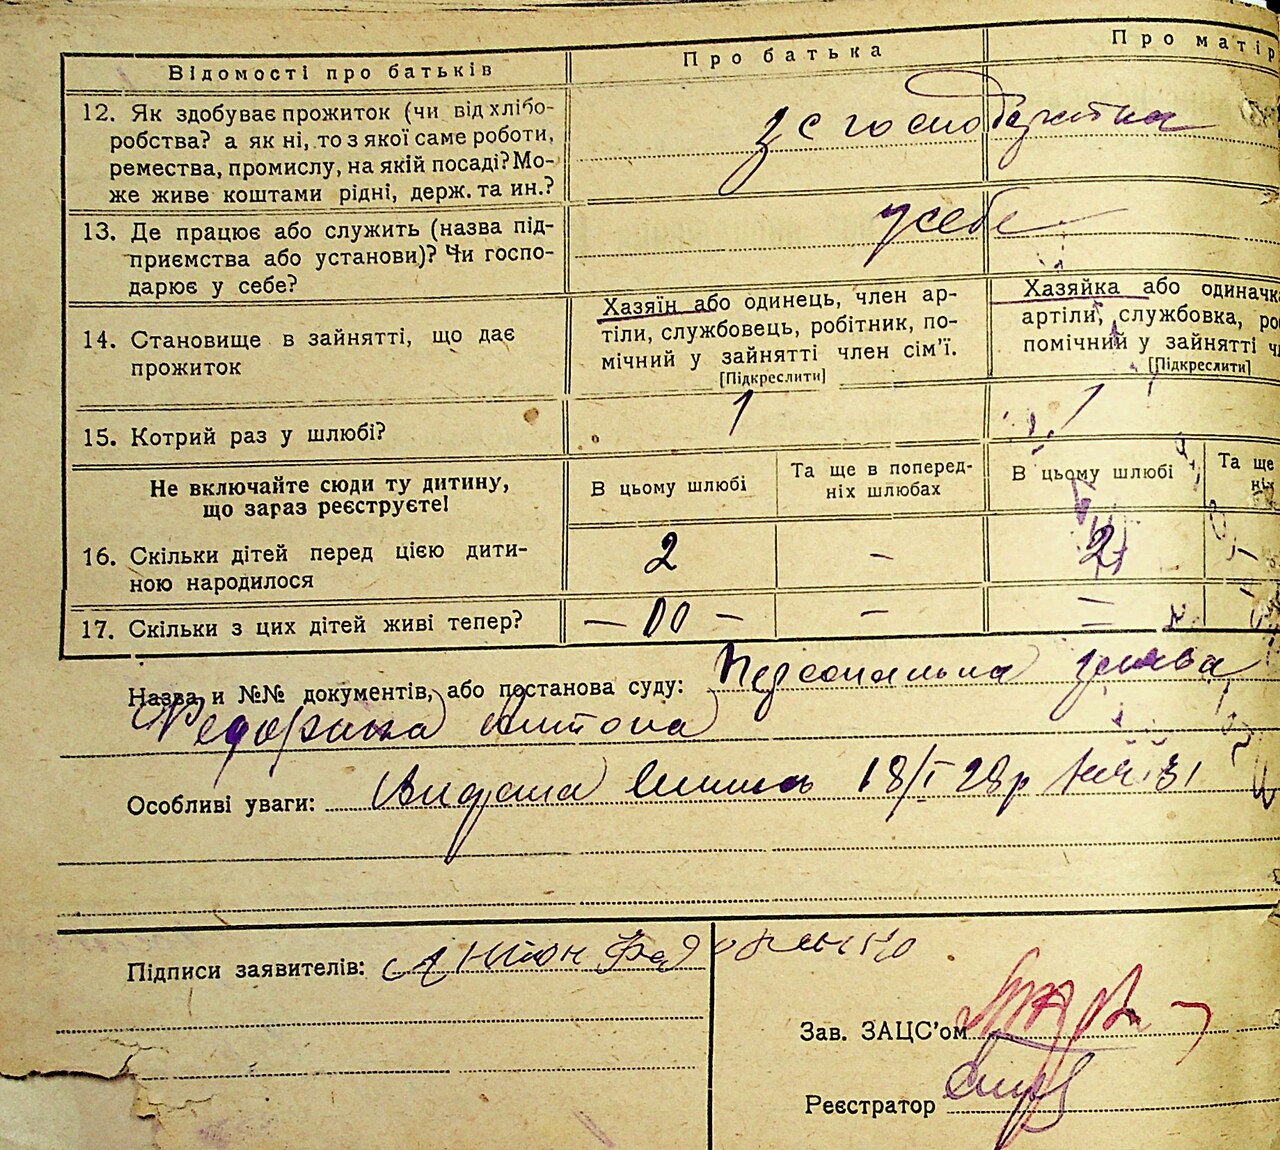 Відомості про батьків
Про батька
Про матір
12. Як здобуває прожиток (чи від хлібо-
робства? а як ні, то з якої саме роботи,
ремества, промислу, на якій посаді? Мо-
же живе коштами рідні, держ. та ин.?
з с господарства
13. Де працює або служить (назва під-
приємства або установи)? Чи госпо-
дарює у себе?
у себе
14. Становище в зайнятті, що дає
прожиток
Хазяїн або одинець, член ар-
тіли, службовець, робітник, по-
мічний у зайнятті член сім'ї.
[Підкреслити]
Хазяйка або одиначка
артіли, службовка, ро
помічний у зайнятті ч
[Підкреслити]
15. Котрий раз у шлюбі?
1
1
Не включайте сюди ту дитину,
що зараз реєструєте!
В цьому шлюбі
Та ще в поперед-
ніх шлюбах
В цьому шлюбі
Та ще
ніх
16. Скільки дітей перед цією дити-
ною народилося
2
-
2
-
17. Скільки з цих дітей живі тепер?
- 00 -
-
=
Назва и №№ документів, або постанова суду: Персональна заява
Федорина Антона
Особливі уваги: Видана 18/I 28р 31
Підписи заявителів: Антон
Зав. ЗАЦС'ом
Реєстратор